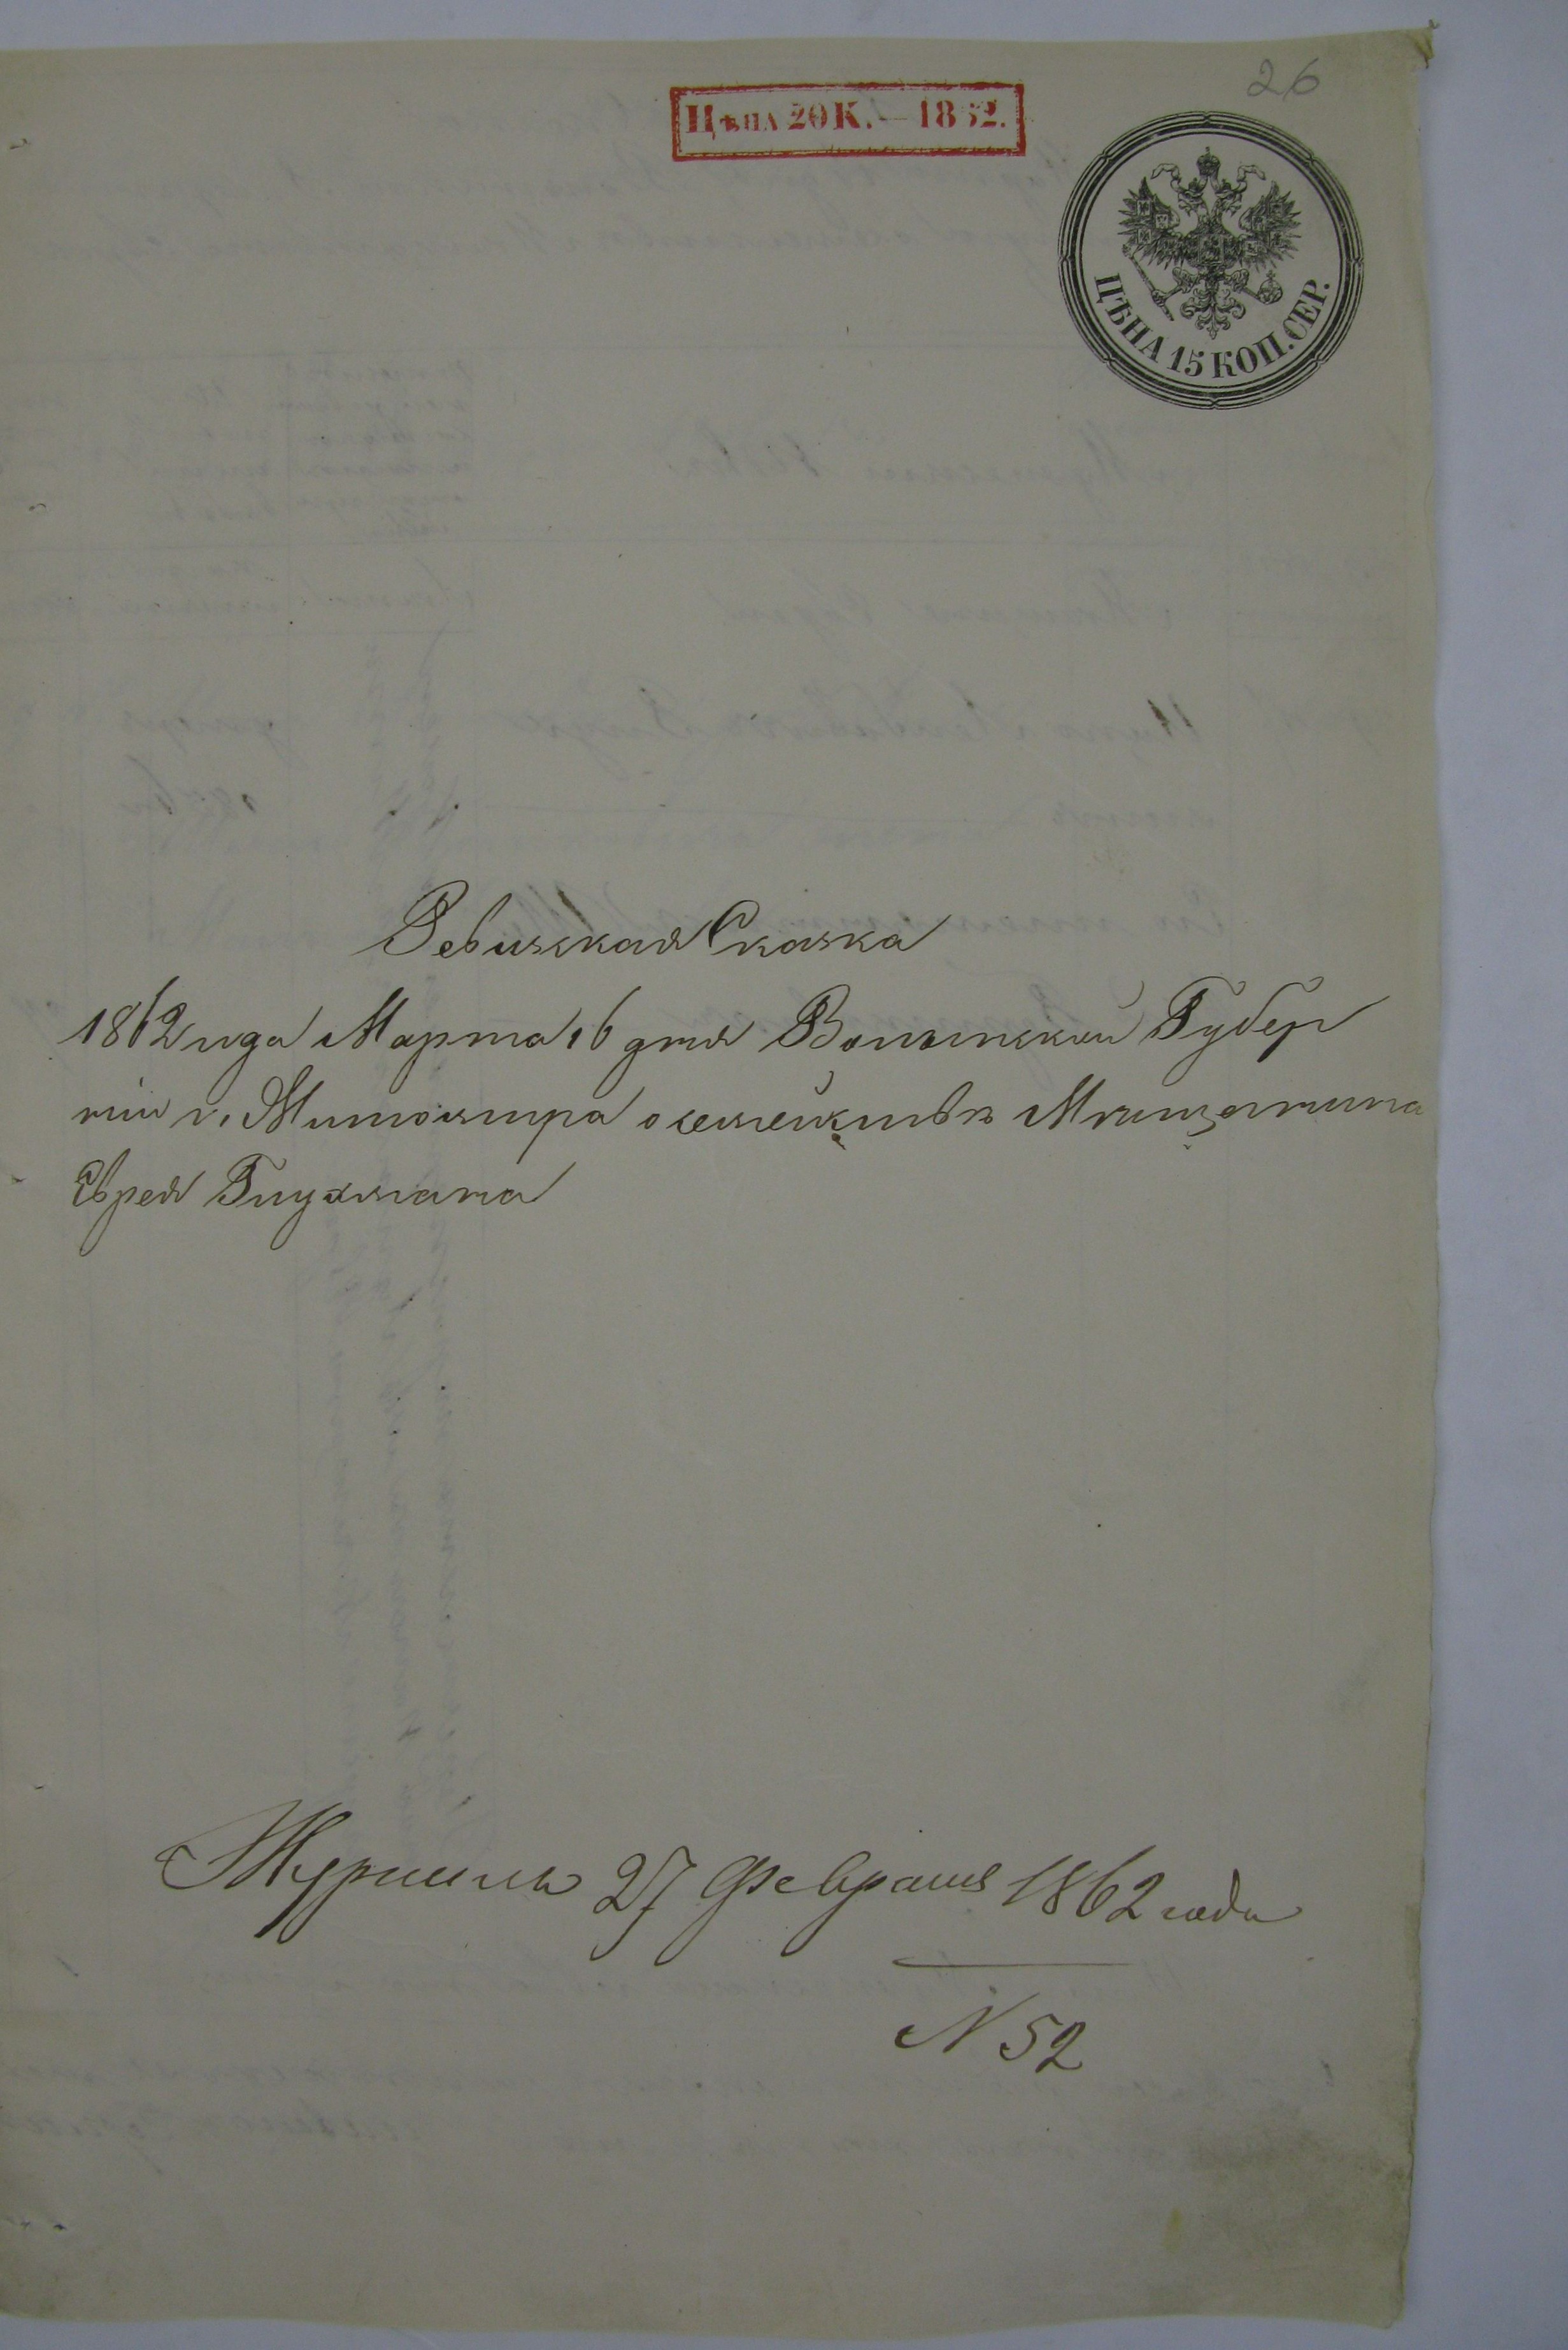 26
Цѣна 20 К. — 1862.
ЦѢНА 15 КОП. СЕР.
Ревизская Сказка
1862 года Марта 16 дня Волынской Губер
ніи г. Житомира о семействѣ Мѣщанина
Еврея Глухмана
Журналъ 27 Февраля 1862 года
N 52